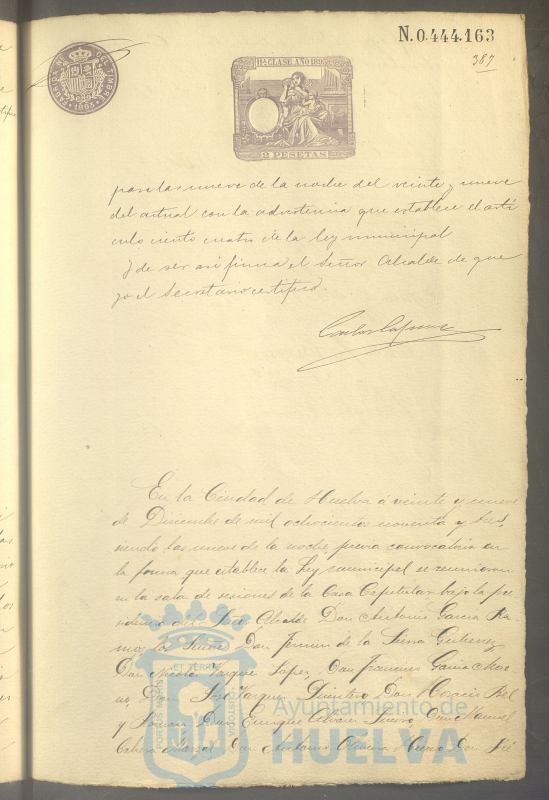 N.0.444.163
387
11ª CLASE AÑO 189
2 PESETAS
1893
para las nueve de la noche del veinte y nueve
del actual con la advertencia que establece el artí
culo ciento cuatro de la ley municipal
Y de ser asi firma el Señor Alcalde de que
yo el Secretario certifico.
En la Ciudad de Huelva á veinte y nueve
de Diciembre de mil ochocientos noventa y tres
siendo las nueve de la noche previa convocatoria en
la forma que establece la Ley municipal se reunieron
en la sala de sesiones de la Casa Capitular bajo la pre
sidencia del Señor Alcalde Don Antonio Garcia Ra
mos los Señores Don Fermin de la Sierra Gutierrez
Don Nicolás Vazquez Lopez Don Francisco Garcia More
no, Don José Vazquez Quintero Don Horacio Bel
y Roman Don Enrique Alvarez Don Manuel
Cabeza Don Antonio Oliveira Don José
PORTUS MARIS ET TERRAE CUSTODIA
Ayuntamiento de
HUELVA